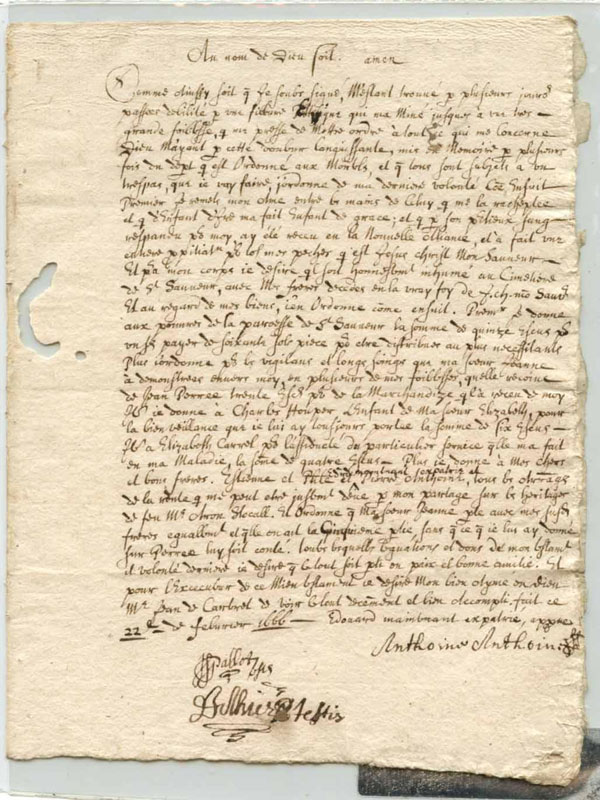 Au nom de Dieu soit. amen
Comme Ainssy soit q Je soubs signé, M'estant trouvé p plusieurs jours
passees debilité p vne fiebvre qui ma Miné jusques a vne tres
grande foiblesse, q me presse de Mettre ordre a tout ce qui me concerne
Dieu Mayant p cette douleur languissante, mis en Memoire p plusieurs
fois du dept q est Ordonné aux Mortels, et q tous sont subjets a vn
trespas, que ie vay faire, jordonne de ma derniere volonté Coe Ensuit
Premier je remets mon Ame entre les mains de Celuy q me la racheptee
et q d'Enfant d'yre ma fait Enfant de grace, et q p son pretieux sang
respandu po moy ay esté receu en la Nouvelle Alliance, et a fait vne
entiere ppitiatn po tos mes peches q est Jesus christ Mon Sauveur
Et po mon corps ie desire ql soit honnestemt inhumé au Cimetiere
de St Sauveur, avec Mes freres decedes en la vray foy de
Et au regard de mes biens, ien Ordonne come ensuit. Premr je donne
aux pouvres de la paroesse de St Sauveur la somme de quinze Escus po
payer de soixante sols piece po etre distribues au plus necessitants
Plus jordonne po les vigilans et longs soings que ma soeur Jeanne
a demonstrees envers moy, en plusieurs de mes foiblesses, quelle recoive
de Jean Perree trente Escus po de la Marchandize q l'a receu de moy
Itt ie donne a Charles Houper L'enfant de Ma soeur Elyzabeth, pour
la bien veillance que ie lui ay tousjours portee la somme de six Escus
Itt a Elizabeth Carrel po L'assiduité du particulier service qlle ma fait
en ma Maladie, la some de quatre Escus Plus ie donne a Mes chers
et bons freres. Estienne et Pierre Anthoine, tous les Arrages
de la rente q me peut etre justemt deue p mon partage sur les heritages
de feu Mr Et Ordonne q Ma soeur Jeanne pte avec mes susds
freres egallemt et qlle en ait la Cinqieme ptie sans q ce q ie lui ay donne
sur Perree luy soit conté. Toutes lesquelles Equations et dons de mon testamt
et volonté derniere ie desire q le tout soit pti en paix et bonne amitié. Et
pour l'Executeur de ce Mien testament ie desire Mon bien Aymé en Dieu
Mr Jean de Carteret de Voir le tout decemt et bien Accompli. fait ce
22e de februrier 1666 Edouard maintenant expatrié,
Anthoine Anthoine
Pallot
testis